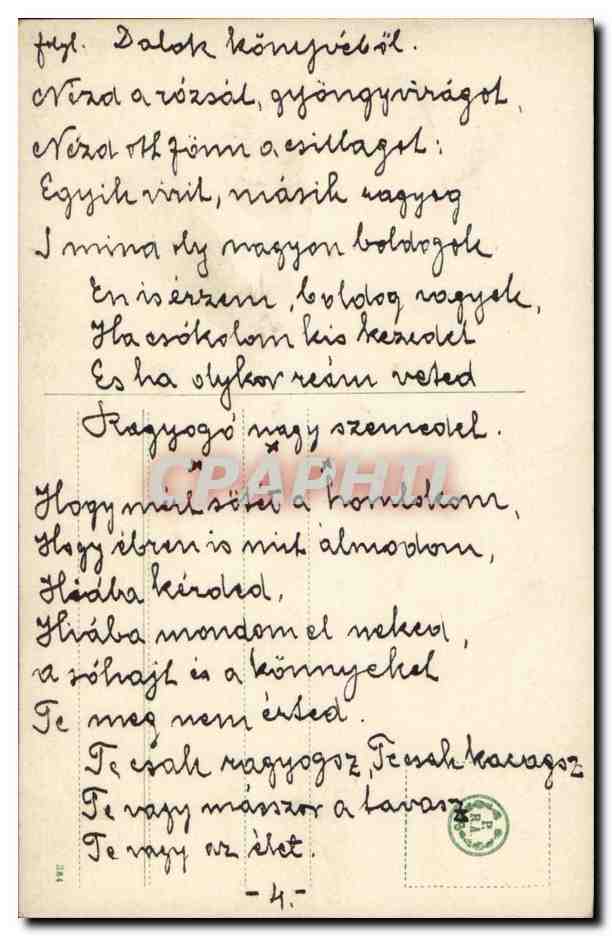 folyt. Dalok könyvéből.
Nézd a rózsát, gyöngyvirágot,
Nézd ott fönn a csillagot:
Egyik virit, másik ragyog
S mind oly nagyon boldogok
Én is érzem, boldog vagyok,
Ha csókolom kis kezedet
Es ha olykor reám veted
Ragyogó nagy szemedet.
x x x
Hogy mért sötét a homlokom,
Hogy ébren is mit álmodom,
Hiába kérded,
Hiába mondom el neked,
a sóhajt és a könnyeket
Te meg nem érted.
Te csak ragyogsz, Te csak kacagsz
Te vagy másszor a tavasz
Te vagy az élet.
-4.-
CPARHTI
PRA
384